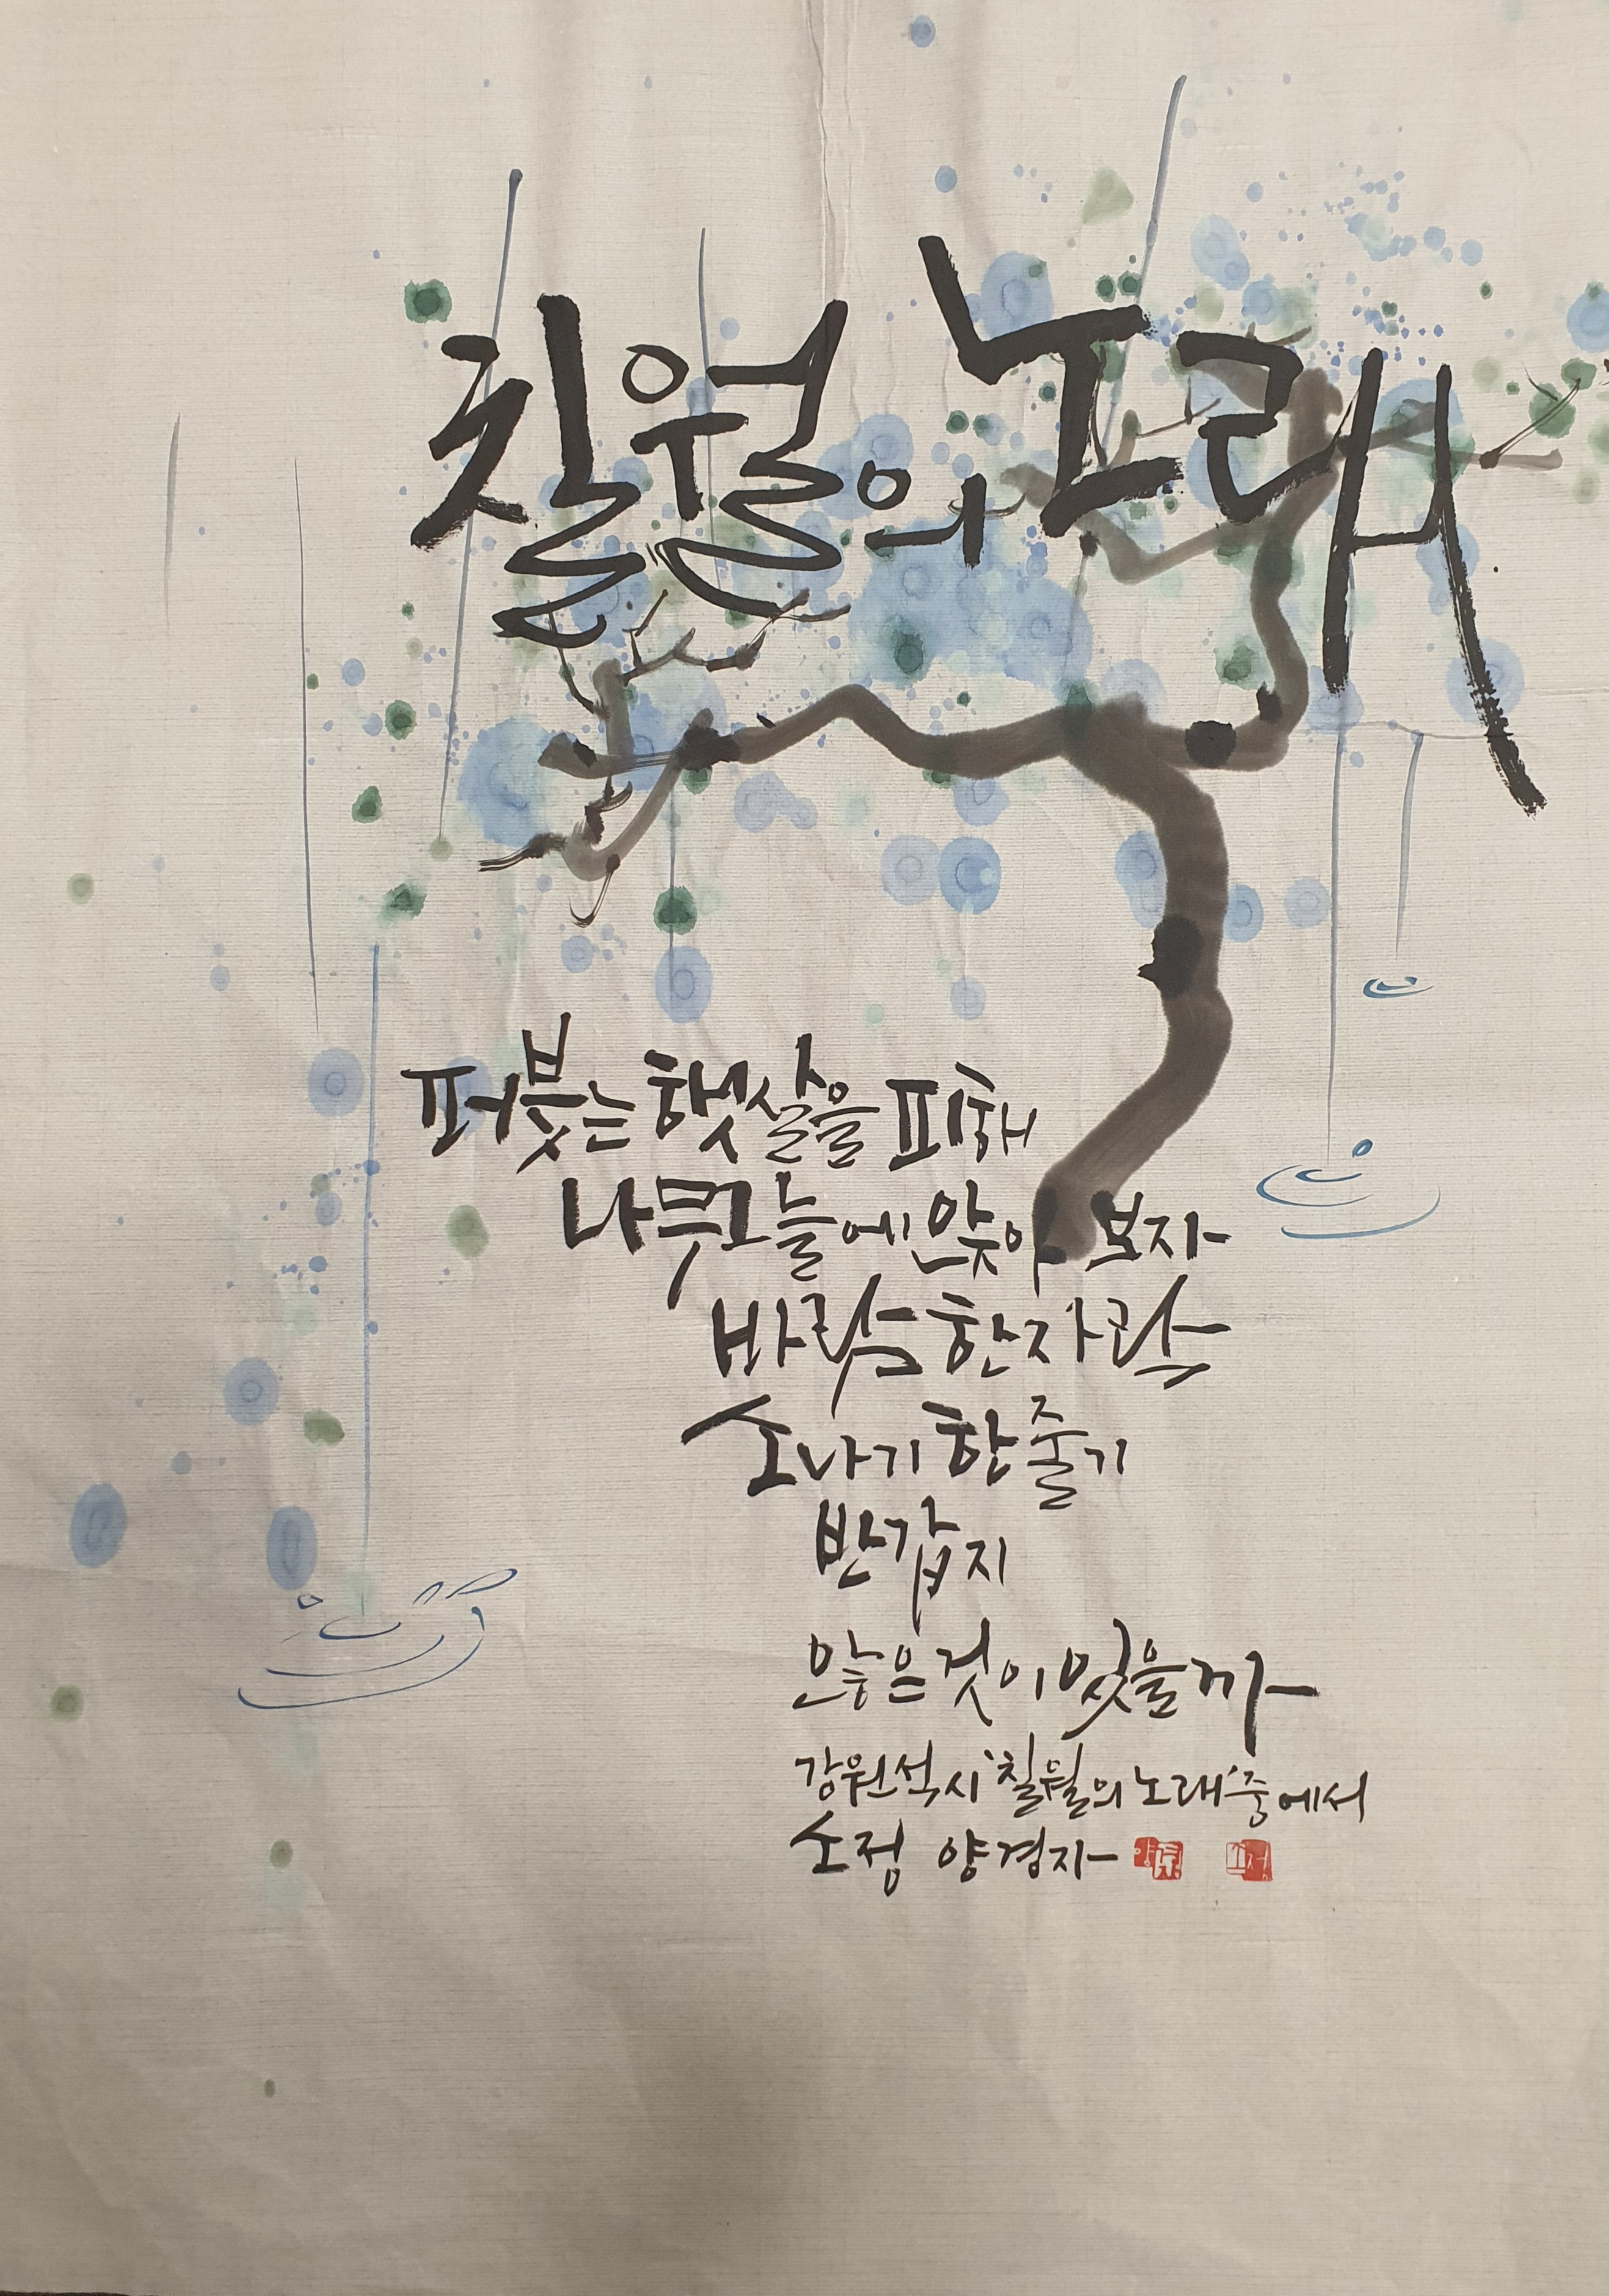 칠월의 노래
퍼붓는 햇살을 피해
나무그늘에 앉아 보자
바람 한 자락
소나기 한 줄기
반갑지
않은 것이 있을까
강원석 시 '칠월의 노래' 중에서
소정 양경자